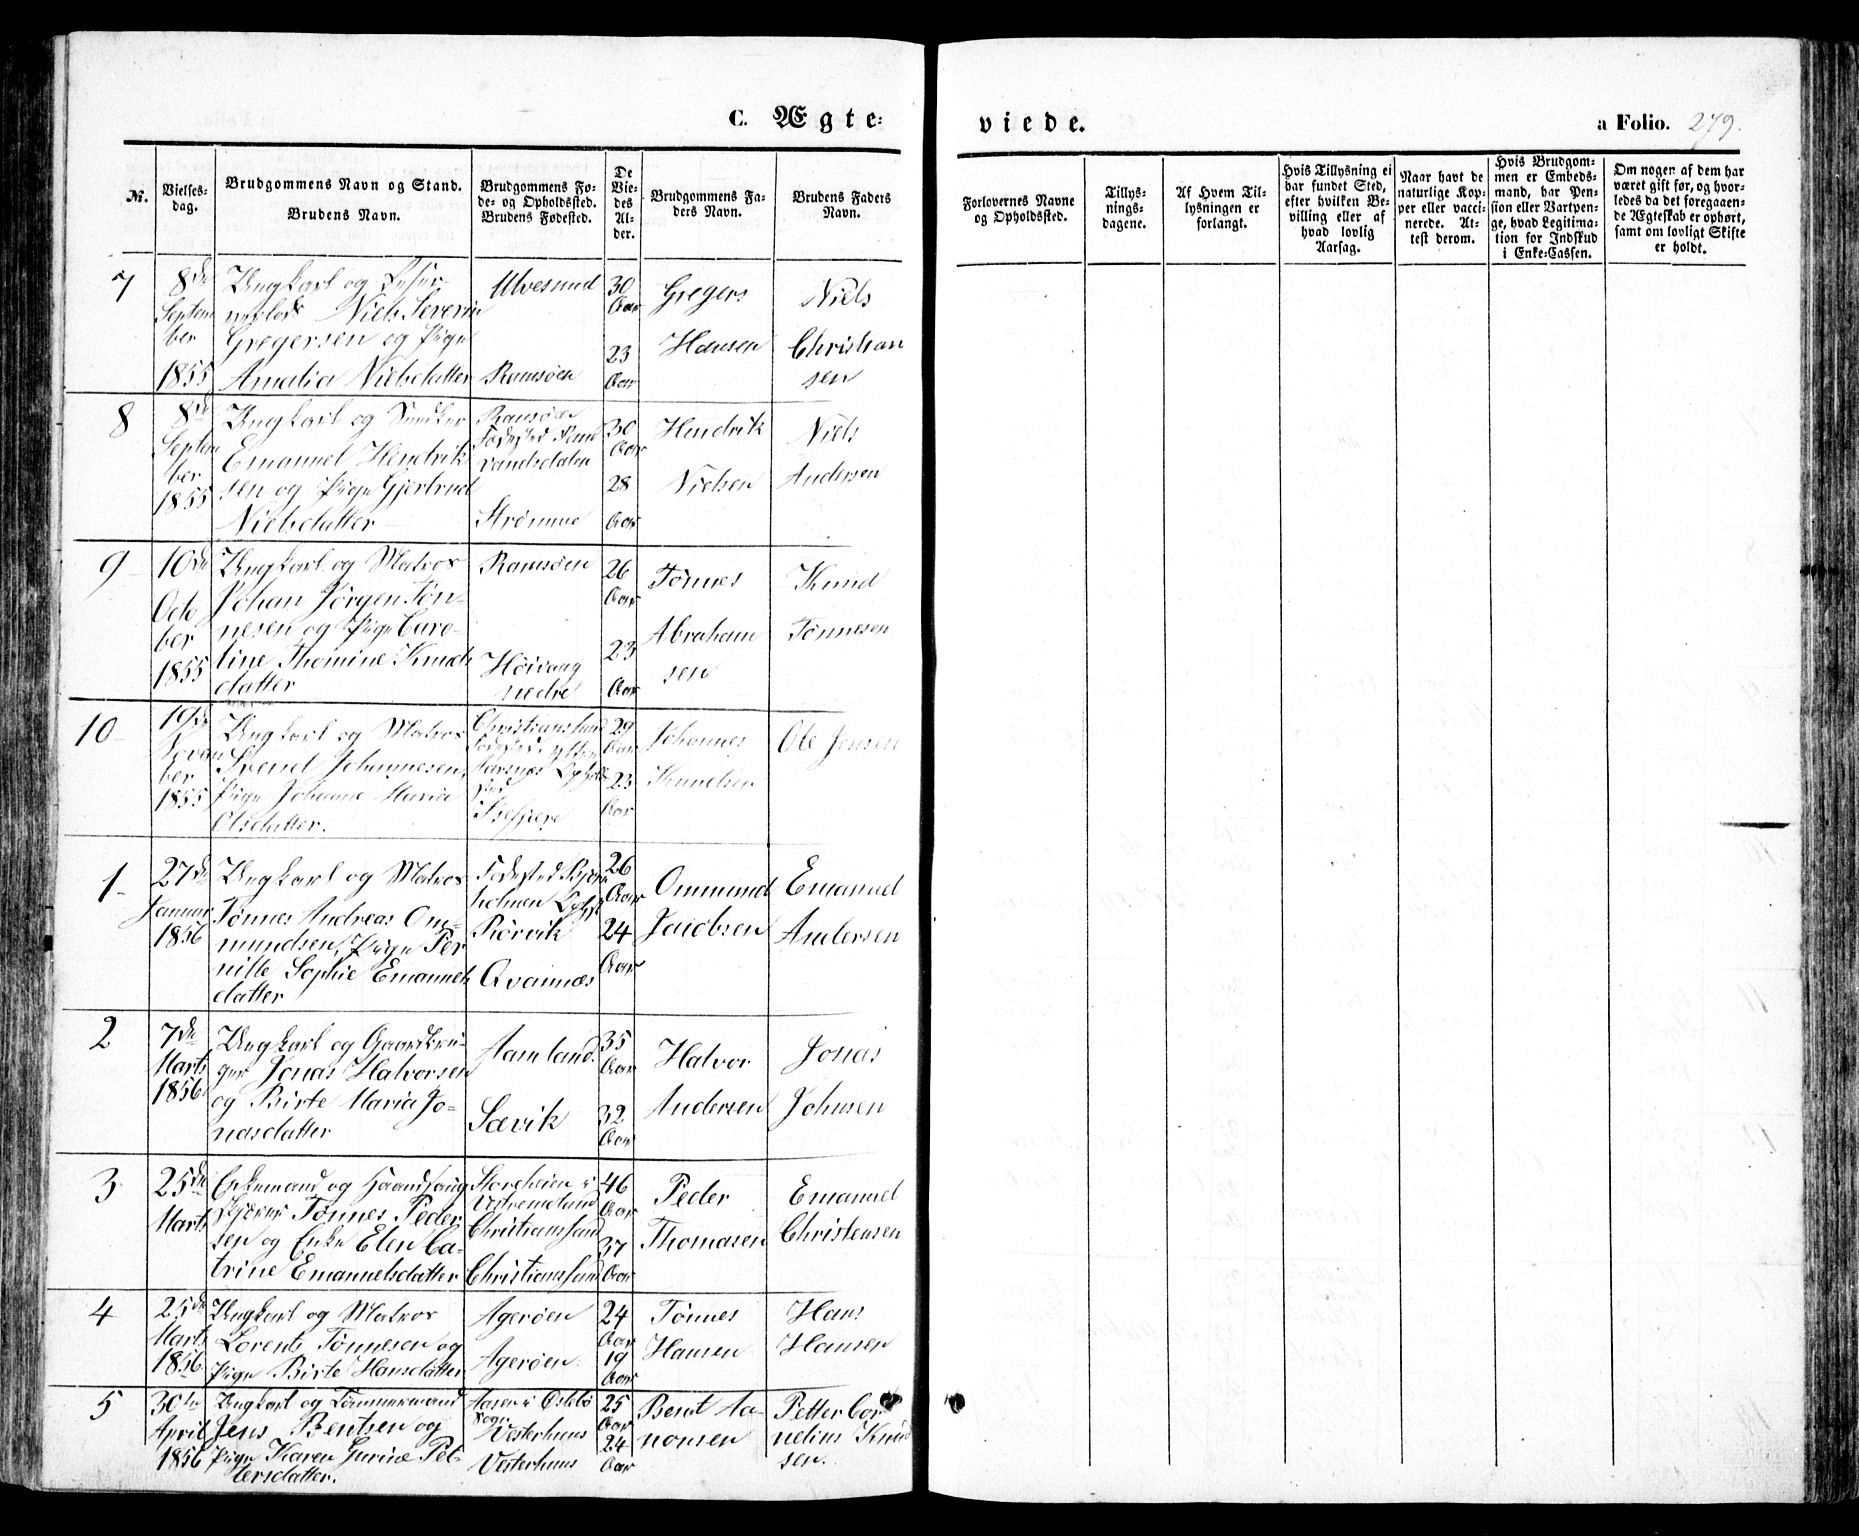 C. Ægte-
viede.
a Folio. 279.
No.
Vielses-
dag.
Brudgommens Navn og Stand.
Brudens Navn.
Brudgommens Fø-
de- og Opholdssted.
Brudens Fødested.
De
Vie-
des
Al-
der.
Brudgommens Fa-
ders Navn.
Brudens Faders
Navn.
Forlovernes Navne
og Opholdssted.
Tillys-
nings-
dagene.
Af Hvem Til-
lysningen er
forlangt.
Hvis Tillysning ei
har fundet Sted,
efter hvilken Be-
villing eller af
hvad lovlig
Aarsag.
Naar havt de
naturlige Kop-
per eller vacci-
nerede. At-
test derom.
Hvis Brudgom-
men er Embeds-
mand, har Pen-
sion eller Vartpen-
ge, hvad Legitima-
tion for Indskud
i Enke-Cassen.
Om nogen af dem har
været gift før, og hvor-
ledes da det foregaaen-
de Ægteskab er ophørt,
samt om lovligt Skifte
er holdt.
7
8de
Septem
ber
1855
Ungkarl og
Niels Severin
Gregersen og Pige
Amalia Nielsdatter
Ulvesund
Ramsøen
30
Aar
23
Aar
Gregers
Hansen
Niels
Christian
sen
8
8de
Septem
ber
1855
Ungkarl og
Emanuel Hendrik
sen og Pige Gjertrud
Nielsdatter
Ramsøen
Fødested
Strømme
30
Aar
28
Aar
Hendrik
Nielsen
Niels
Andersen
9
10de
Octo
ber
1855
Ungkarl og Matros
Johan Jørgen Tøn-
nesen og Pige Caro-
line Thomine Knuds
datter
Ramsøen
Høivaag
nedre
26
Aar
23
Aar
Tønnes
Abraham
sen
Knud
Tønnesen
10
19de
Novem
ber
1855
Ungkarl og Matros
Svend Johannesen,
Pige Johanne Maria
Olsdatter.
Christianssand
Fødested
29
Aar
23
Aar
Johannes
Knudsen
Ole Jensen
1
27de
Januar
1856
Ungkarl og Matros
Tønnes Andreas Om-
mundsen, Pige Per
nille Sophie Emanuels
datter
Fødested Bjørn
holmen
Rørvik
Qvannæs
26
Aar
24
Aar
Ommund
Jacobsen
Emanuel
Andersen
2
7de
Marts
1856
Ungkarl og Gaardbru-
ger Jonas Halvorsen
og Birte Maria Jo-
nasdatter
Aamland.
Sævik
35
Aar
32
Aar
Halvor
Andersen
Jonas
Johnsen
3
25de
Marts
Enkemand og
Tønnes Peder
sen og Enke Elen Ca-
trine Emanuelsdatter
Storeheien i
Christianssand
Christianssand
46
Aar
37
Aar
Peder
Thomasen
Emanuel
Christensen
4
25de
Marts
1856
Ungkarl og Matros
Lorents Tønnesen og
Pige Birte Hansdatter
Agerøen
Agerøen
24
Aar
19
Aar
Tønnes
Hansen
Hans
Hansen
5
30te
April
1856
Ungkarl og Tømmermand
Jens Bentsen og
Pige Karen Gurine Pet
tersdatter.
Aasen i
Sogn
Vesterhuus
Vesterhuus
25
Aar
24
Aar
Bent Aa-
nonsen
Petter Cor
nelius Knud
sen.